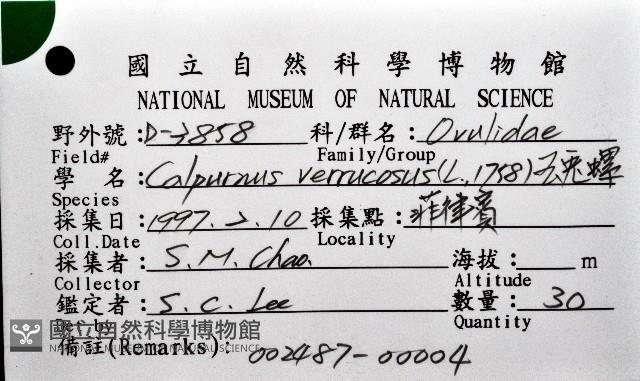 國立自然科學博物館
NATIONAL MUSEUM OF NATURAL SCIENCE
野外號：D-7858 科/群名：Ovulidae
Field# Family/Group
學 名：Calpurnus verrucosus (L, 1758) 玉兎螺
Species
採集日：1997. 2. 10 採集點：菲律賓
Coll.Date Locality
採集者：S. M. Chao 海拔： m
Collector Altitude
鑑定者：S. C. Lee 數量：30
Det.by Quantity
國立自然科學博物館
NATIONAL MUSEUM OF NATURAL SCIENCE
備註(Remarks)：002487-00004